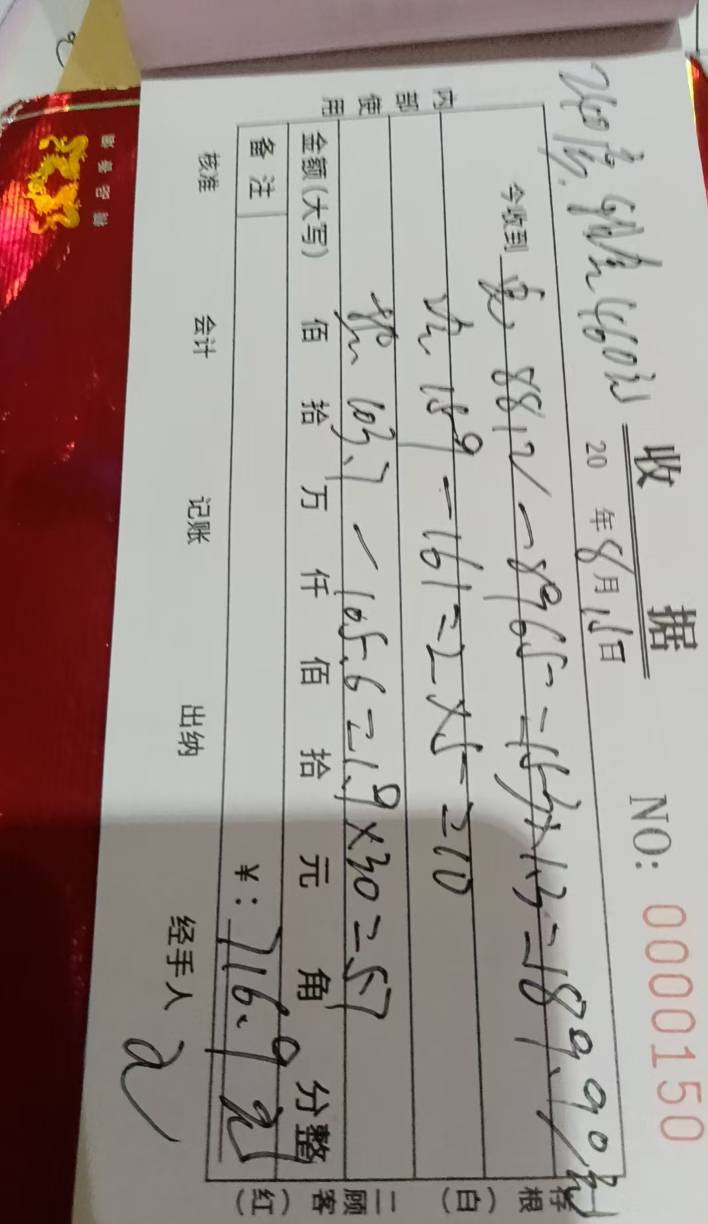 收 据
NO: 0000150
房租460元
20 年8月15日
今收到 电 8812-8965=153×1.3=198.90元
水 159-161=2×5=10
热 103.7-105.6=1.9×30=57
金额(大写) 佰 拾 万 仟 佰 拾 元 角 分整
¥: 716.9元
备 注
核准 会计 记账 出纳 经手人
内部使用
存根(白) 二顾客(红)